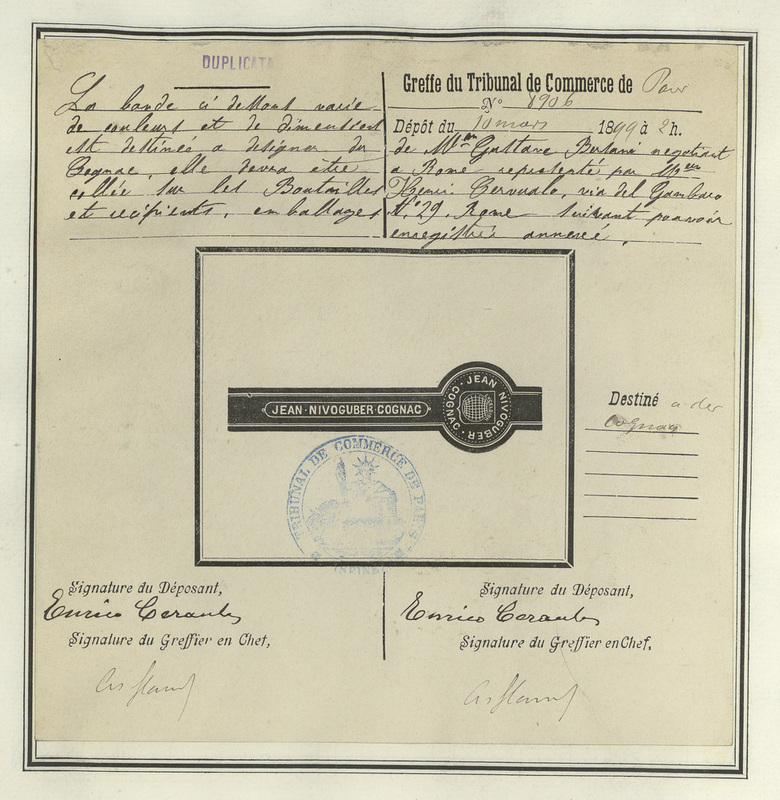 DUPLICATA
La bande ci dessous varie
de couleurs et de dimensions
est destinée a designer du
Cognac, elle devra être
collée sur les Bouteilles
et récipients, emballages
Greffe du Tribunal de Commerce de Paris
N° 8906
Dépôt du 10 mars 1899 à 2 h.
de Gustave negotiant
a Rome representé par
via del Gambero
N° 29 Rome suivant pouvoir
enregistré annexé.
JEAN · NIVOGUBER · COGNAC
JEAN NIVOGUBER · COGNAC ·
TRIBUNAL DE COMMERCE DE PARIS
(SEINE)
Destiné a des
cognac
Signature du Déposant,
Enrico
Signature du Greffier en Chef,
Signature du Déposant,
Enrico
Signature du Greffier en Chef,